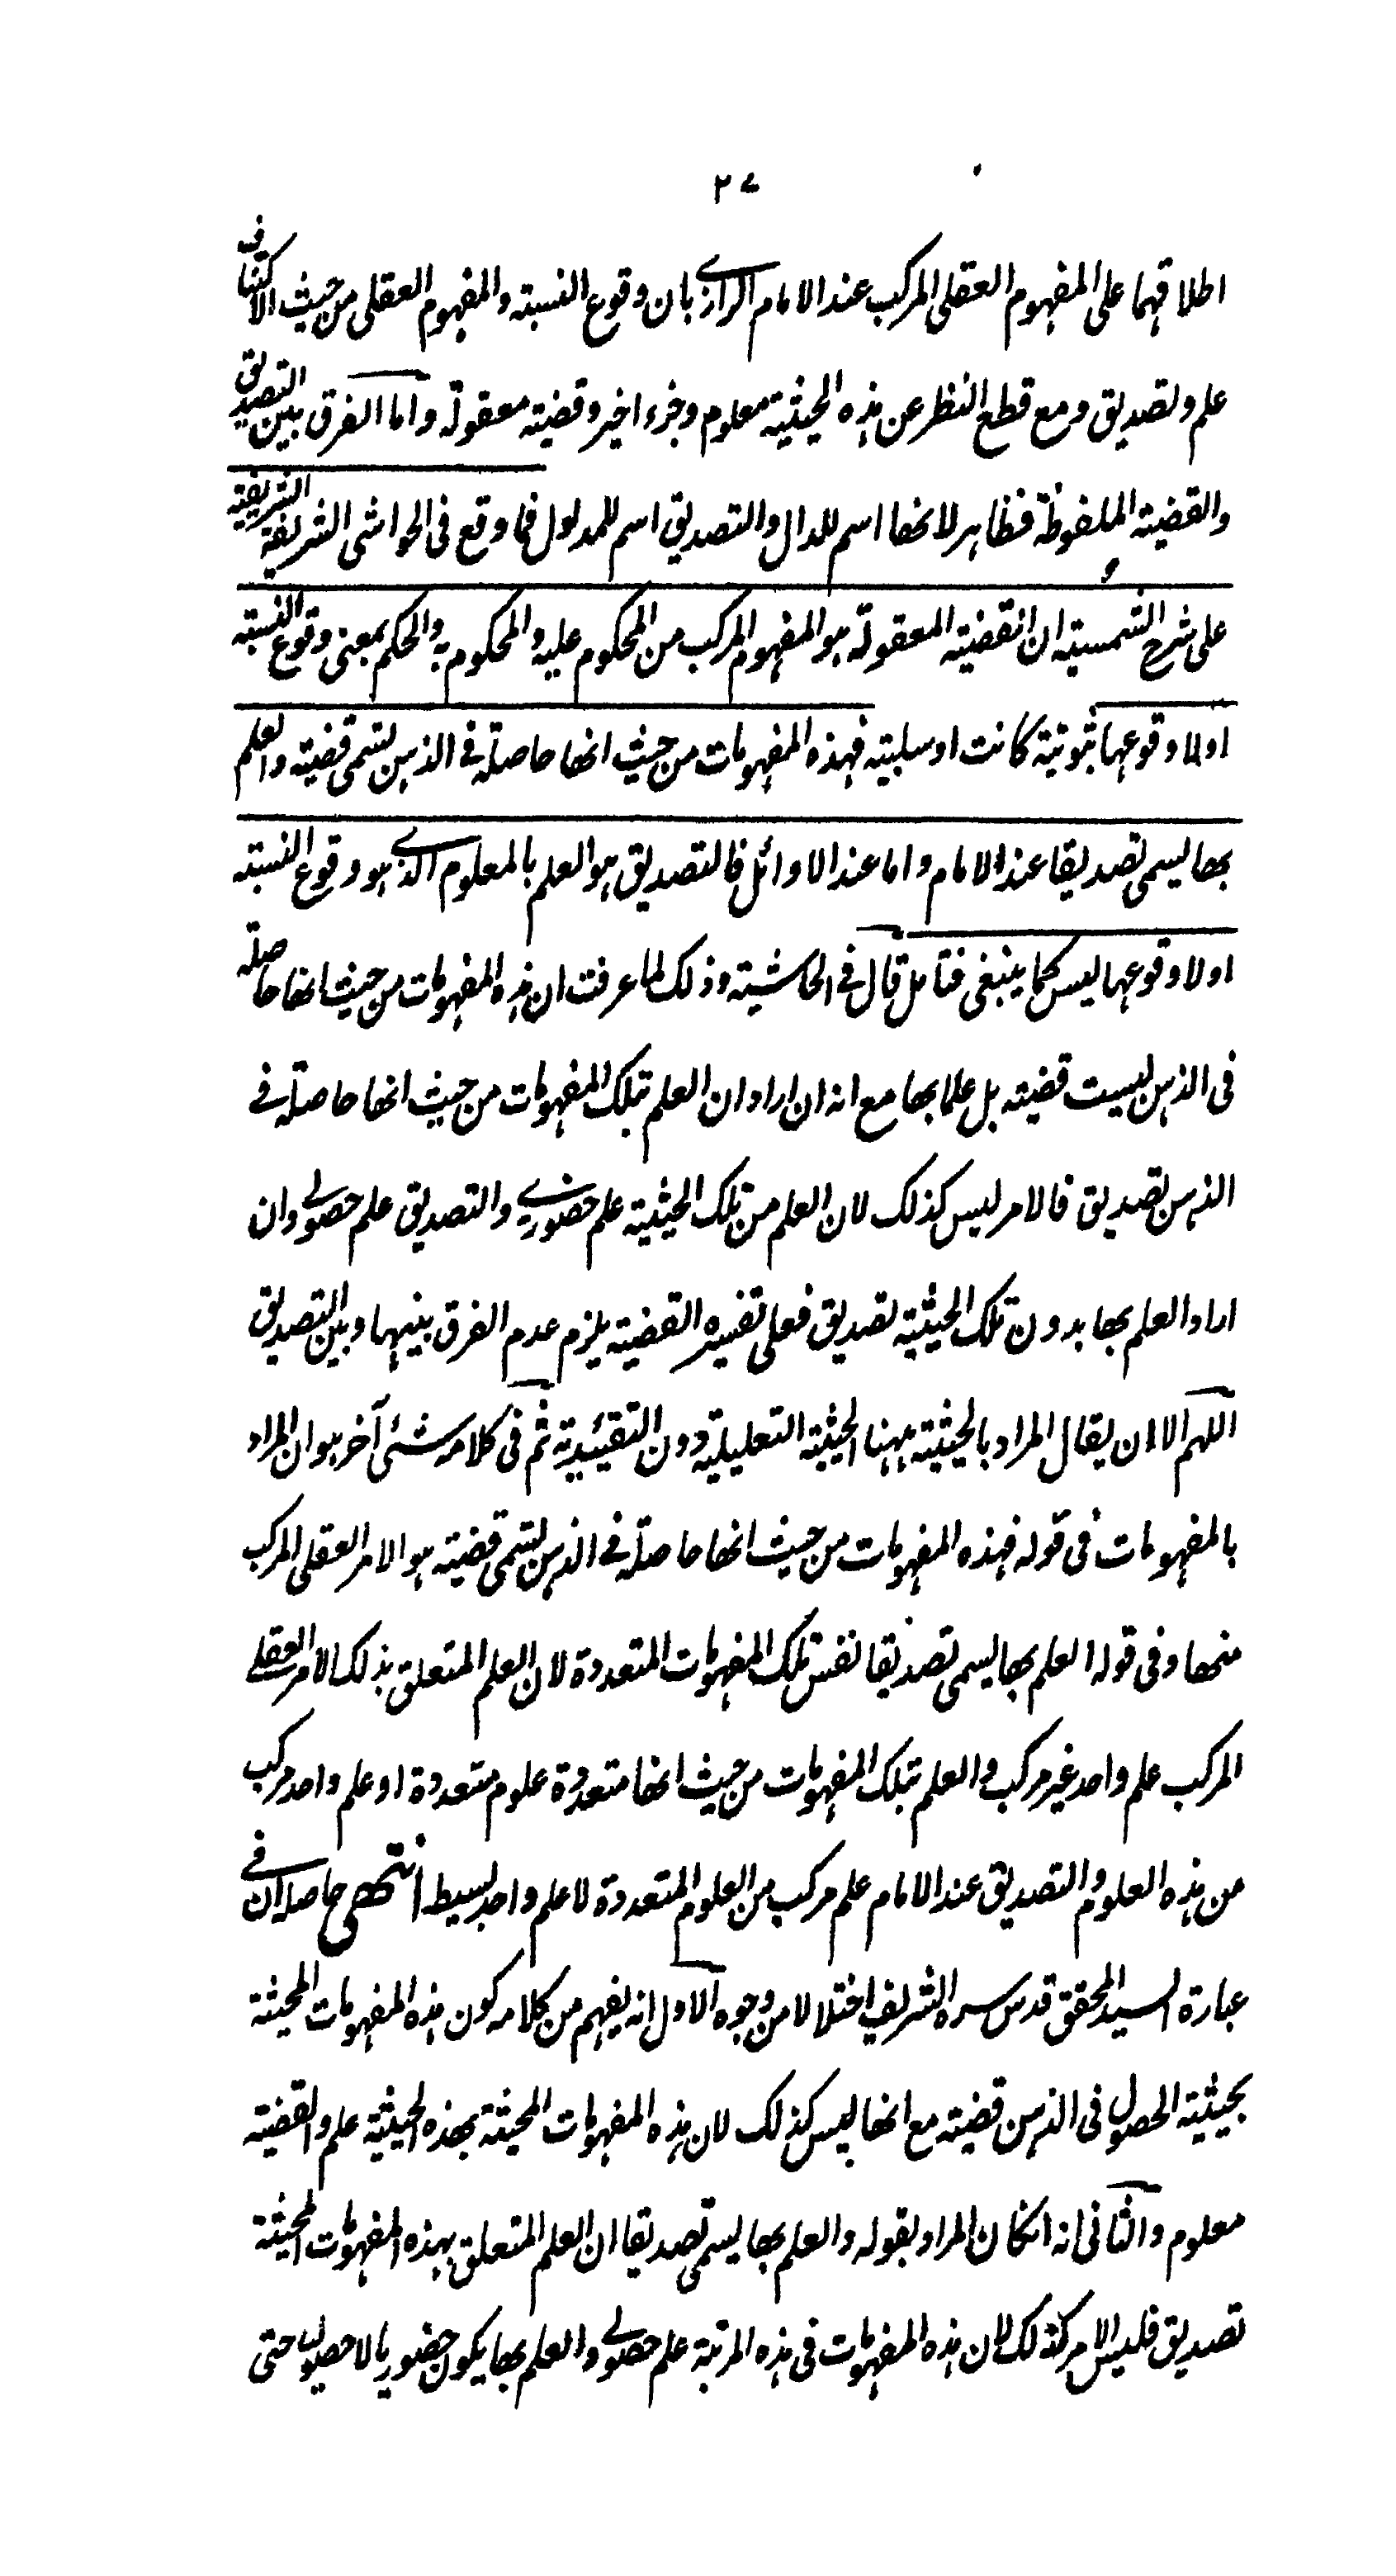 ٢٧
اطلاقهما على المفهوم العقلى المركب عند الامام الرازے بان وقوع النسبته والمفهوم العقلى من حيث الاكتنافى
علم وتصديق ومع قطع النظر عن هذه الحيثية معلوم وجزء اخير وقضيته معقولة واما الفرق بين التصديق
والقضيته الملفوظة فظاهر لانها اسم للدال والتصديق اسم للمدلول فما وقع فى الحواشى الشريفة الشريفية
على شرح الشمسيته ان القضيته المعقولة هو المفهوم المركب من المحكوم عليه والمحكوم به والحكم بمعنى وقوع النسبته
اولا وقوعها ثبوتية كانت او سلبيته فهذه المفهومات من حيث انها حاصلة فے الذهن تسمى قضيته والعلم
بها يسمى تصديقا عند الامام واما عند الاوائل فالتصديق هو العلم بالمعلوم الذے هو وقوع النسبته
اولا وقوعها ليس كما ينبغى فتأمل قال فے الحاشيته وذلك لما عرفت ان هذه المفهومات من حيث انها حاصلة
فى الذهن ليست قضيته بل علما بها مع انه ان اراد ان العلم بتلك المفهومات من حيث انها حاصلة فے
الذهن تصديق فالامر ليس كذلك لان العلم من تلك الحيثية علم حضورے والتصديق علم حصولے وان
اراد العلم بها بدون تلك الحيثية تصديق فعلى تفسيره القضيته يلزم عدم الفرق بينهما وبين التصديق
اللهم الا ان يقال المراد بالحيثيته ههنا الحيثية التعليلية دون التقئيدية ثم فى كلامه شئى آخر هو ان المراد
بالمفهومات فى قوله فهذه المفهومات من حيث انها حاصلة فے الذهن تسمى قضيته هو الامر العقلى المركب
منها وفى قوله العلم بها يسمى تصديقا نفس تلك المفهومات المتعددة لان العلم المتعلق بذلك الامر العقلے
المركب علم واحد غير مركب والعلم بتلك المفهومات من حيث انها متعددة علوم متعددة او علم واحد مركب
من هذه العلوم والتصديق عند الامام علم مركب من العلوم المتعددة لا علم واحد بسيط انتهى حاصله ان فے
عبارة السيد المحقق قدس سره الشريف اختلالا من وجوه الاول انه يفهم من كلامه كون هذه المفهومات المحيثة
بحيثيته الحصول فى الذهن قضيته مع انها ليس كذلك لان هذه المفهومات المحيثة بهذه الحيثية علم والقضيته
معلوم والثانى انه انكان المراد بقوله والعلم بها يسمى تصديقا ان العلم المتعلق بهذه المفهومات المحيثة
تصديق فليس الامر كذلك لان هذه المفهومات فى هذه المرتبة علم حصولے والعلم بها يكون حضوريا لا حصوليا حتى